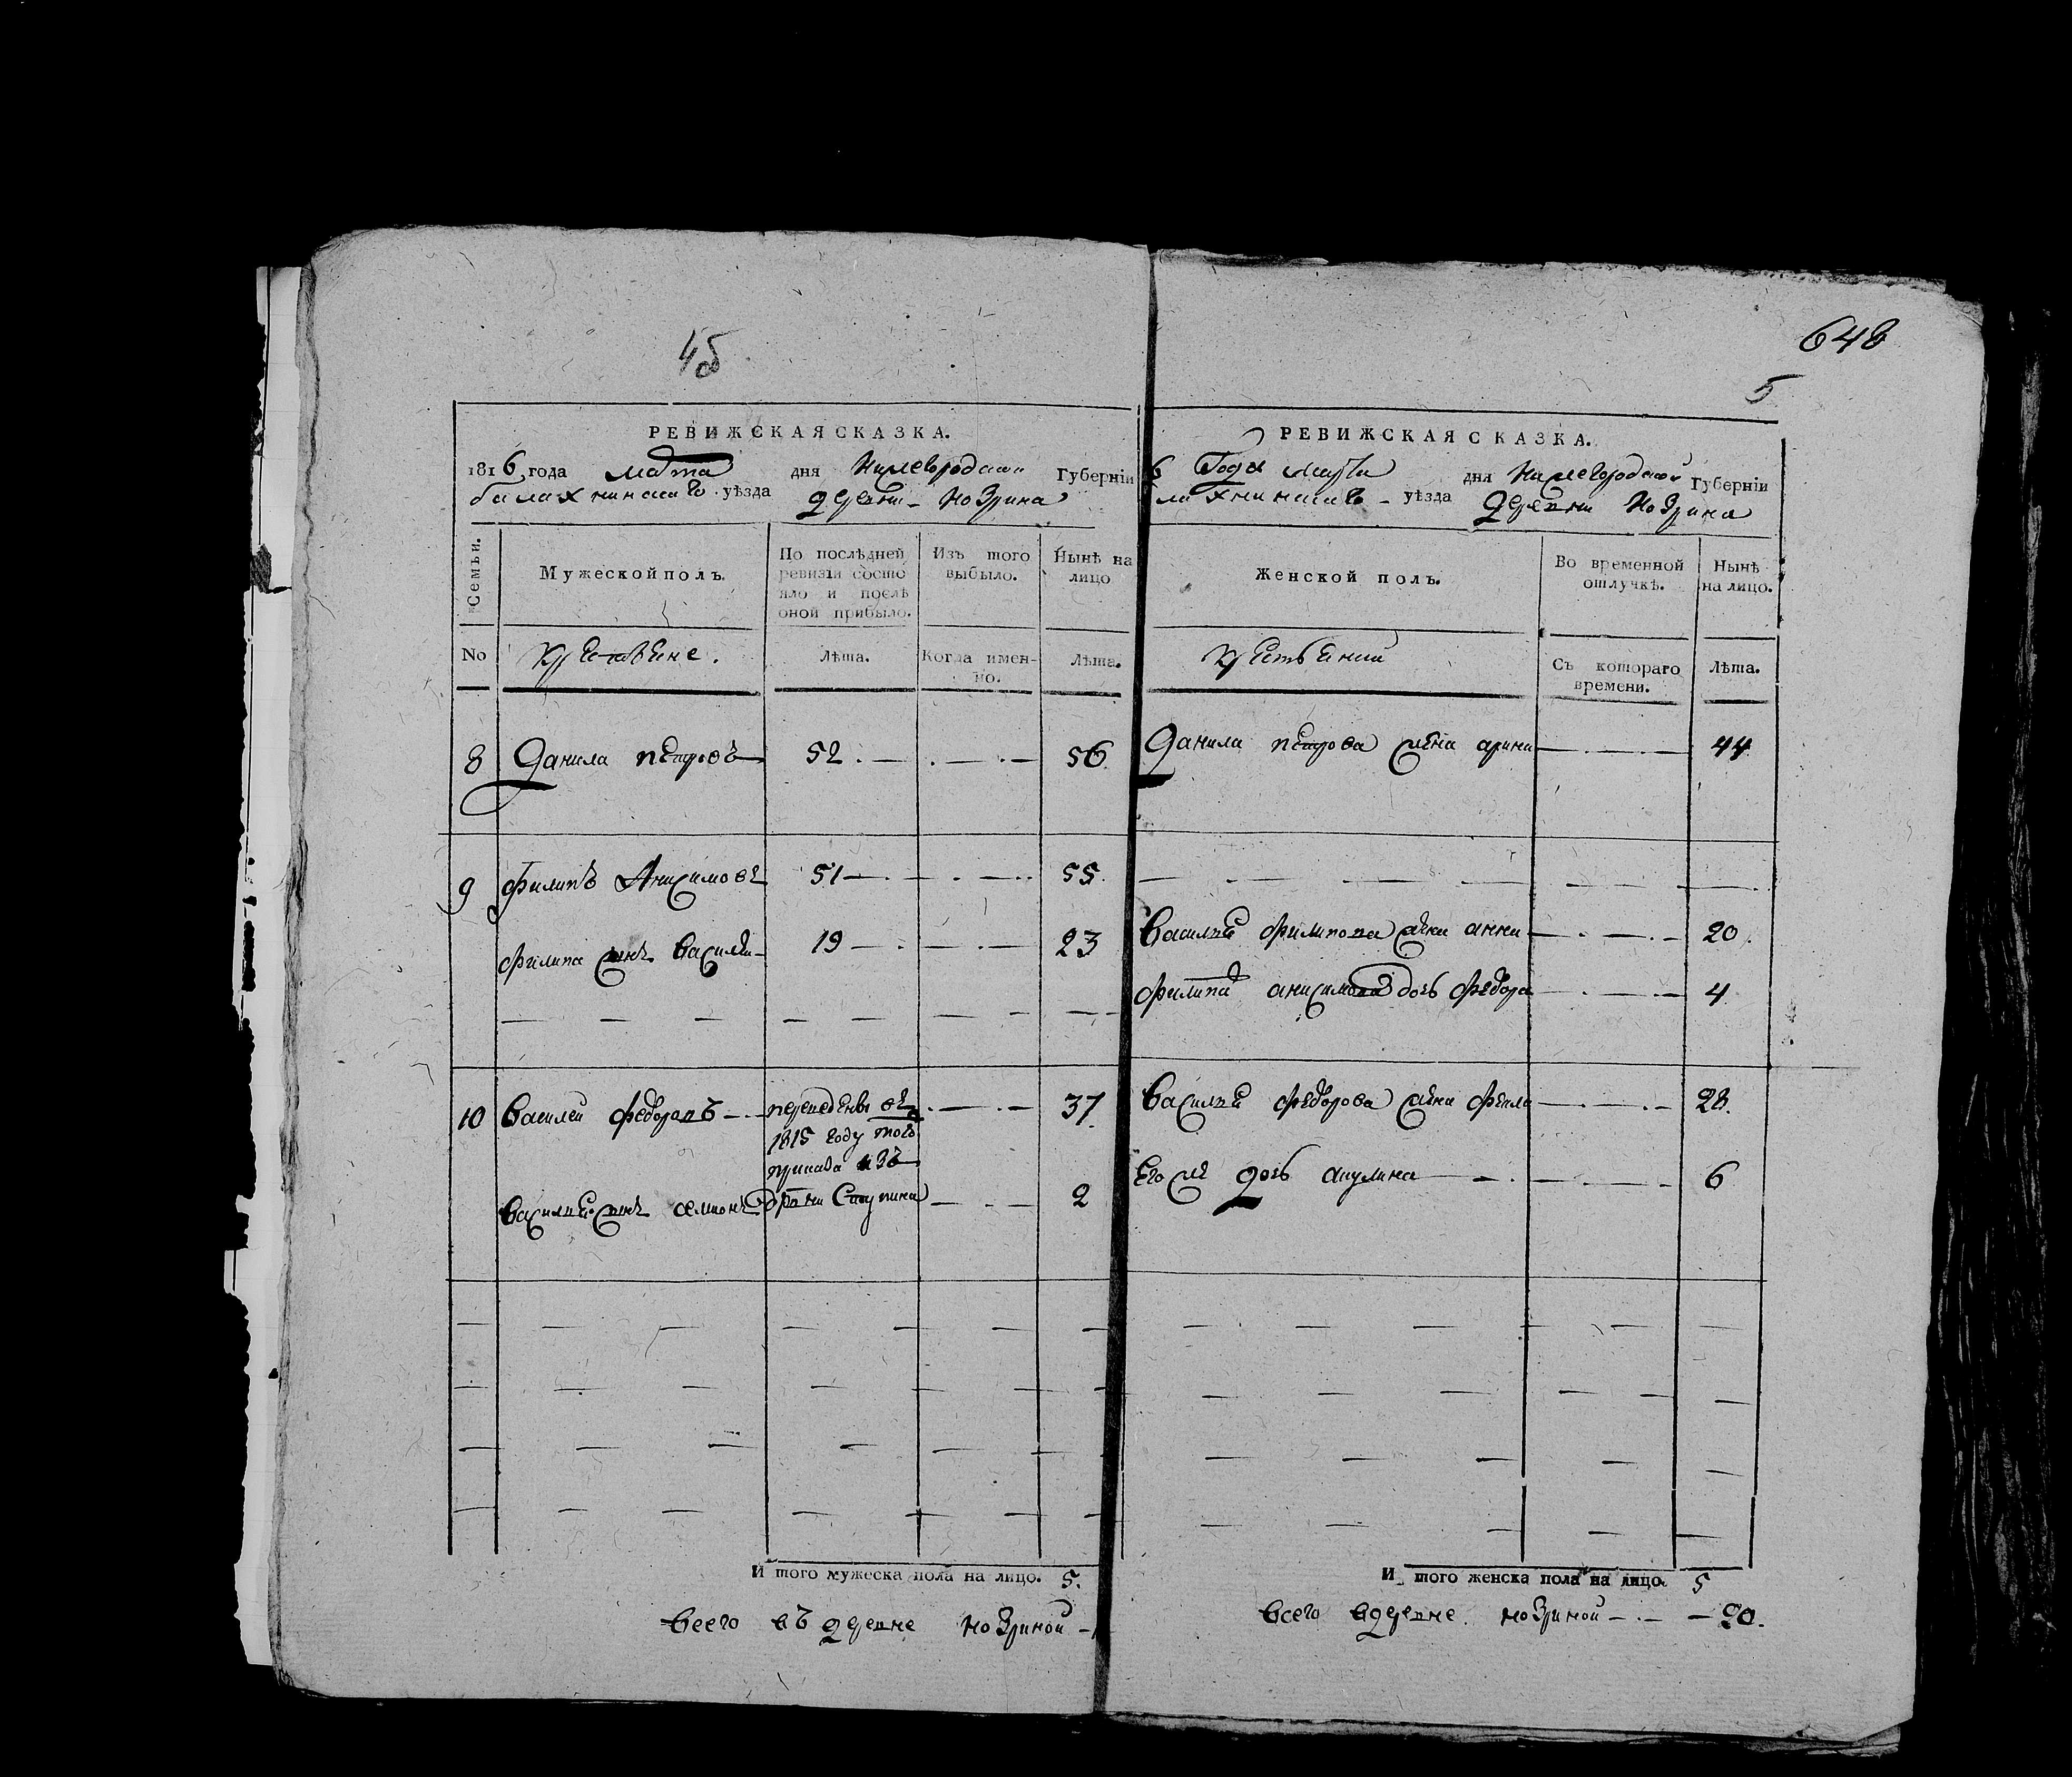 4б
РЕВИЖСКАЯ СКАЗКА.
1816 года марта дня Нижегородской Губерніи
балахнинскаго уѣзда деревни Ковригина
Семьи.
Мужеской полъ.
По послѣдней ревизіи состояло и послѣ оной прибыло.
Изъ того выбыло.
Нынѣ на лицо
No
крестьяне.
Лѣта.
Когда именно.
Лѣта.
8 Данила петровъ 52 56
9 филипъ Анисимовъ 51 55
филипа сынъ василей 19 23
10 василей федоровъ переведенъ въ 37
1815 году того
приказа изъ
василья сынъ дрвни Ступина 2
И того мужеска пола на лицо. 5.
всего въ деревне
648
5
РЕВИЖСКАЯ СКАЗКА.
6 Года марта дня Нижегородской Губерніи
лахнинскаго уѣзда деревни
Женской полъ.
Во временной отлучкѣ.
Нынѣ на лицо.
крестьянки
Съ котораго времени.
Лѣта.
Данила петрова жена арина 44
василья филипова жена анна 20
филипа анисимова дочь федора 4
василья федорова жена 28
Его же дочь акулина 6
И того женска пола на лицо. 5
всего в деревне 20.